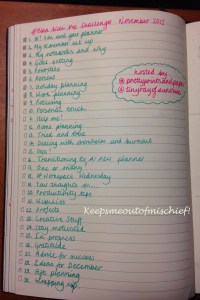 #Plan With Me Challenge November 2015
1. Hi! I'm and your planner
2. My planner set up
3. My notebooks and why
4. Goal setting
5. Favorites
6. Review
7. Holiday planning
8. Work planning?
9. Routines
10. Personal touch
11. Help me!
12. Home planning
13. Tried and
14. Dealing with overwhelm and burnout
15. Oops!
16. Transitioning to a new planner
17. One or many?
18. #Workspace Wednesday
19. Your thoughts on...
20. Productivity tips
21. Wishlist
22. Projects
23. Creative Stuff
24. Stay motivated
25. In progress
26. Gratitude
27. Advice for success
28. Ideas for December
29. planning
30. Wrapping up
hosted by
@prettyprintsandpaper
@tinyrayofsunshine
Keepsmeoutofmischief!